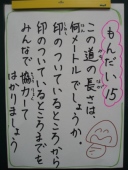 もんだい15
この道の長さは、
何メートルでしょうか。
印のついているところから
印のついているところまでを
みんなで協力して
はかりましょう